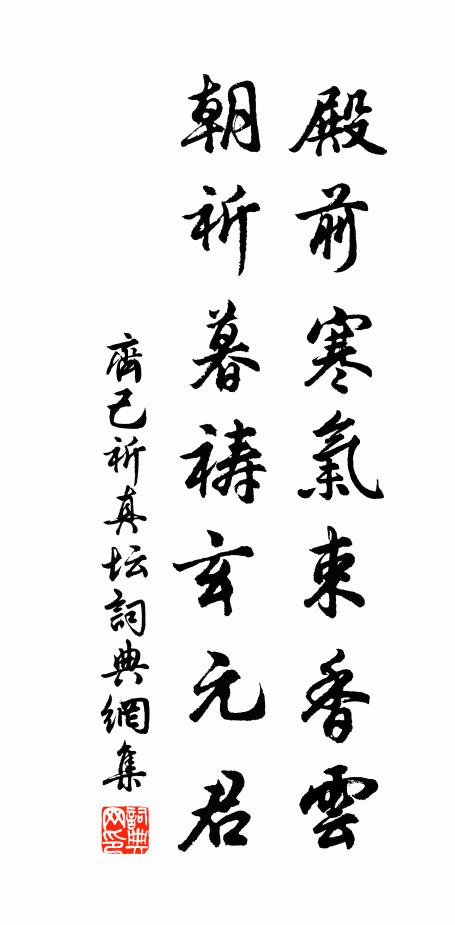 殿前寒氣束香雲
朝祈暮禱玄元君
齊己祈真坛詞典網集
詞典网印